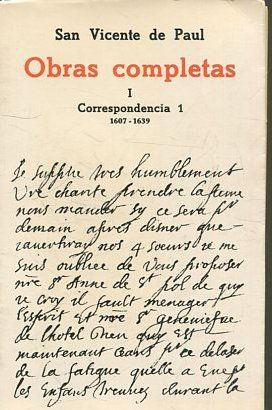 San Vicente de Paul
Obras completas
I
Correspondencia 1
1607 - 1639
Je supplie tres humblement
Vre charite prendre la peine
nous mander sy ce sera pr
demain apres disner que
rauertiray nos 4 soeurs Je me
suis oubliee de Vous proposer
nre Sr Anne de St pol de quy
Je croy il fault menager
l'esprit Et nre Sr geneuiefve
de lhotel Dieu quy Est
maintenant ceans pr ce delaser
de la fatigue quelle a Eue
les Enfans trouues durant la